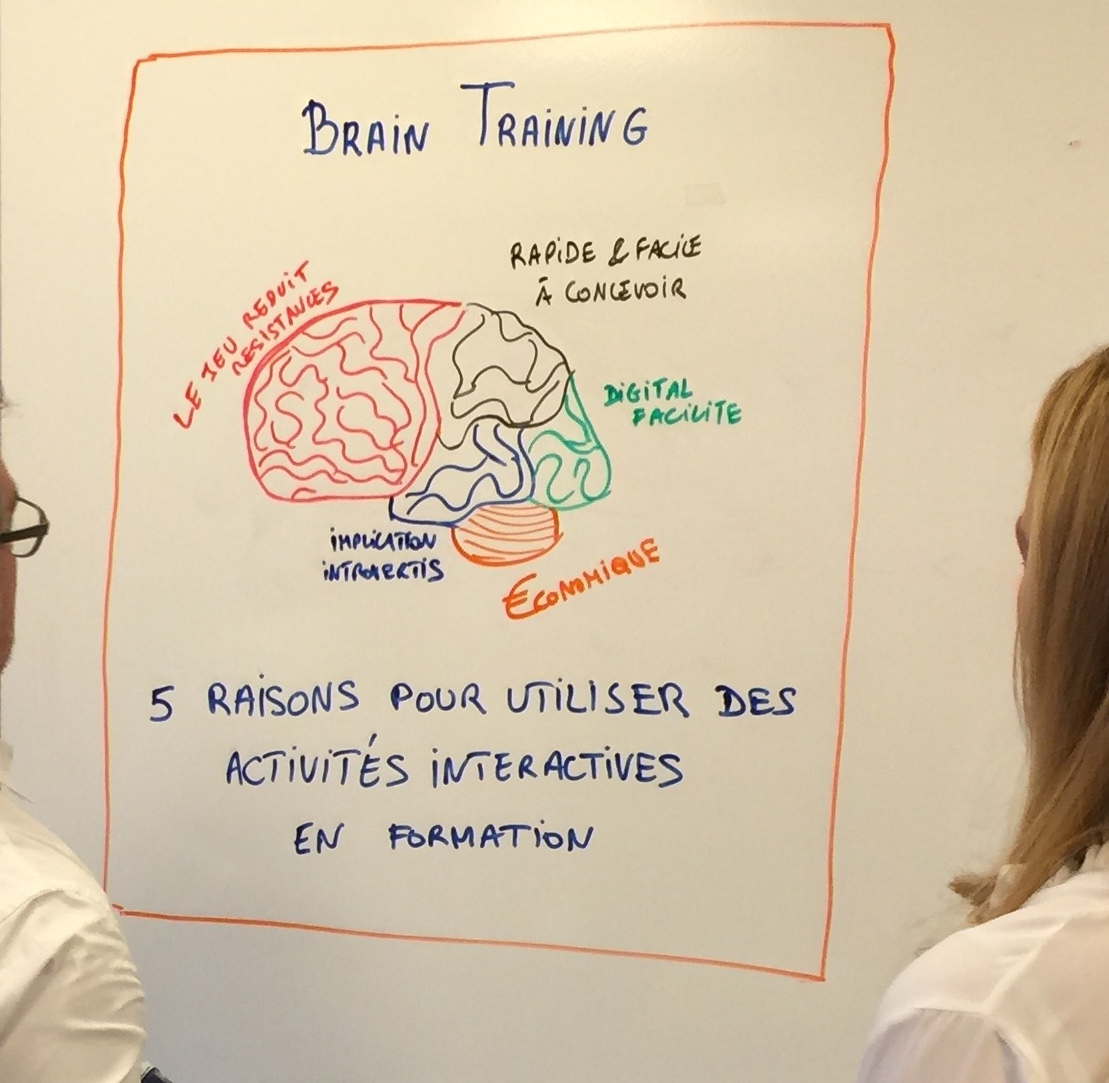 BRAIN TRAINING
RAPIDE & FACILE
À CONCEVOIR
LE JEU REDUIT
RESISTANCES
DIGITAL
FACILITE
IMPLICATION
INTROVERTIS
ECONOMIQUE
5 RAISONS POUR UTILISER DES
ACTIVITÉS INTERACTIVES
EN FORMATION